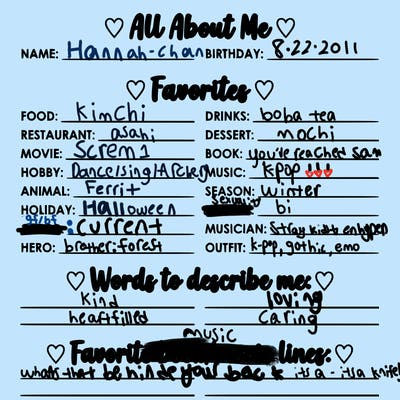 ♡ All About Me ♡
NAME: Hannah-chan BIRTHDAY: 8.22.2011
♡ Favorites ♡
FOOD: Kimchi DRINKS: boba tea
RESTAURANT: asahi DESSERT: mochi
MOVIE: Screm 1 BOOK: you're reached Sam
HOBBY: Dance/sing/ MUSIC: kpop
ANIMAL: Ferrit SEASON: winter
HOLIDAY: Halloween sexuality bi
gf/bf: current MUSICIAN: Stray kids enhypen
HERO: brother:forest OUTFIT: k-pop, gothic, emo
♡ Words to describe me: ♡
kind loving
heartfilled caring
music
♡ Favorite lines: ♡
what's that be hinde your back it's a - itsa knife!